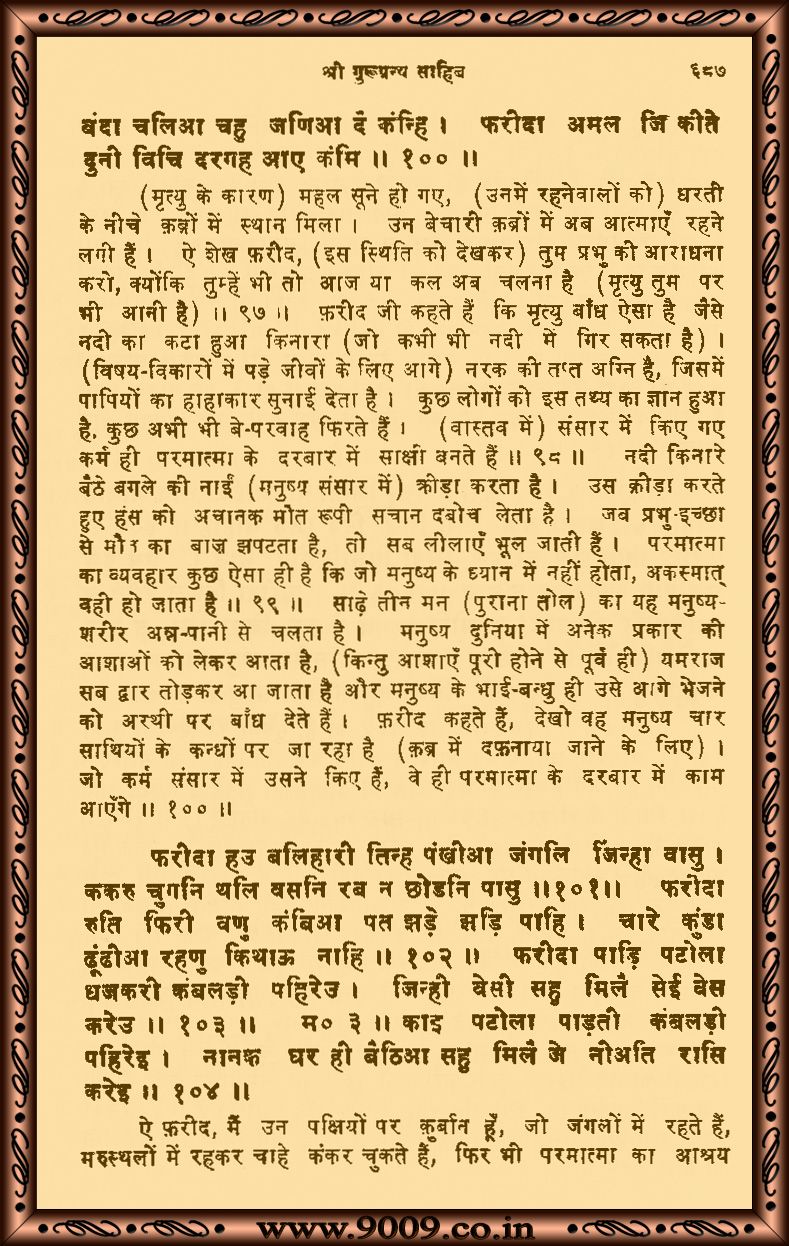 श्री गुरूग्रन्थ साहिब ६८७
बंदा चलिआ चहु जणिआ दै कंन्हि । फरीदा अमल जि कीते
दुनी विचि दरगह आए कंमि ॥ १०० ॥
(मृत्यु के कारण) महल सूने हो गए, (उनमें रहनेवालों को) धरती
के नीचे क़ब्रों में स्थान मिला । उन बेचारी क़ब्रों में अब आत्माएँ रहने
लगी हैं । ऐ शेख फ़रीद, (इस स्थिति को देखकर) तुम प्रभु की आराधना
करो, क्योंकि तुम्हें भी तो आज या कल अब चलना है (मृत्यु तुम पर
भी आनी है) ॥ ९७ ॥ फ़रीद जी कहते हैं कि मृत्यु बाँध ऐसा है जैसे
नदी का कटा हुआ किनारा (जो कभी भी नदी में गिर सकता है) ।
(विषय-विकारों में पड़े जीवों के लिए आगे) नरक की तप्त अग्नि है, जिसमें
पापियों का हाहाकार सुनाई देता है । कुछ लोगों को इस तथ्य का ज्ञान हुआ
है, कुछ अभी भी बे-परवाह फिरते हैं । (वास्तव में) संसार में किए गए
कर्म ही परमात्मा के दरबार में साक्षी बनते हैं ॥ ९८ ॥ नदी किनारे
बैठे बगले की नाईं (मनुष्य संसार में) क्रीड़ा करता है । उस क्रीड़ा करते
हुए हंस को अचानक मौत रूपी सचान दबोच लेता है । जब प्रभु-इच्छा
से मौत का बाज़ झपटता है, तो सब लीलाएँ भूल जाती हैं । परमात्मा
का व्यवहार कुछ ऐसा ही है कि जो मनुष्य के ध्यान में नहीं होता, अकस्मात्
वही हो जाता है ॥ ९९ ॥ साढ़े तीन मन (पुराना तोल) का यह मनुष्य-
शरीर अन्न-पानी से चलता है । मनुष्य दुनिया में अनेक प्रकार की
आशाओं को लेकर आता है, (किन्तु आशाएँ पूरी होने से पूर्व ही) यमराज
सब द्वार तोड़कर आ जाता है और मनुष्य के भाई-बन्धु ही उसे आगे भेजने
को अरथी पर बाँध देते हैं । फ़रीद कहते हैं, देखो वह मनुष्य चार
साथियों के कन्धों पर जा रहा है (क़ब्र में दफ़नाया जाने के लिए) ।
जो कर्म संसार में उसने किए हैं, वे ही परमात्मा के दरबार में काम
आएँगे ॥ १०० ॥
फरीदा हउ बलिहारी तिन्ह पंखीआ जंगलि जिंन्हा वासु ।
ककरु चुगनि थलि वसनि रब न छोडनि पासु ॥१०१॥ फरीदा
रुति फिरी वणु कंबिआ पत झड़े झड़ि पाहि । चारे कुंडा
ढूंढीआ रहणु किथाऊ नाहि ॥ १०२ ॥ फरीदा पाड़ि पटोला
धजकरी कंबलड़ी पहिरेउ । जिन्ही वेसी सहु मिलै सेई वेस
करेउ ॥ १०३ ॥ म० ३ ॥ काइ पटोला पाड़ती कंबलड़ी
पहिरेइ । नानक घर ही बैठिआ सहु मिलै जे नीअति रासि
करेइ ॥ १०४ ॥
ऐ फ़रीद, मैं उन पक्षियों पर क़ुर्बान हूँ, जो जंगलों में रहते हैं,
मरुस्थलों में रहकर चाहे कंकर चुकते हैं, फिर भी परमात्मा का आश्रय
www.9009.co.in